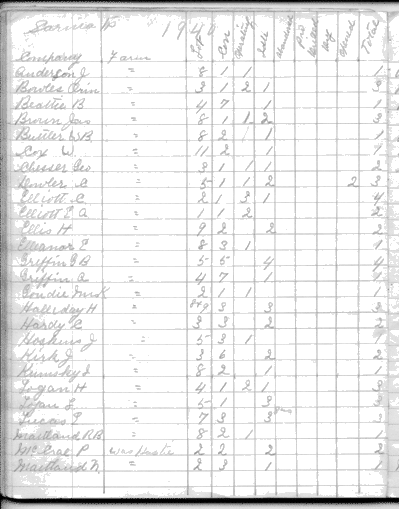 Sarnia Tp 1940
Company Farm Lot Con Operating Idle Abandoned Dry Drilled Total
Anderson J " 8 1 1 1
Bowles Orin " 3 1 2 1 3
Beattie B " 4 7 1 1
Brown Jas " 8 1 1 2 3
Buttler W.B. " 8 2 1 1
Cox W. " 11 2 1 1
Chesser Geo " 3 1 1 1 2
Dowler C " 5 1 1 2 2 3
Elliott C " 2 1 3 1 4
Elliott E A " 1 1 2 2
Ellis H " 9 2 2 2
Elleanor E " 8 3 1 1
Griffin G B " 5 5 4 4
Griffin A " 4 7 1 1
Goudie Mrs K " 2 1 1 1
Halliday H " 8+9 3 3 3
Hardy R " 3 3 2 2
Hoskins J " 5 3 1 1
Kirk J " 3 6 2 2
Krimsky I " 8 2 1 1
Logan H " 4 1 2 1 3
Logan L " 5 1 3 3
Lucas E " 7 3 3 gas 3
Maitland R.B. " 8 2 1 1
McCrae P was Hastie 2 2 2 2
Maitland N. " 2 3 1 1